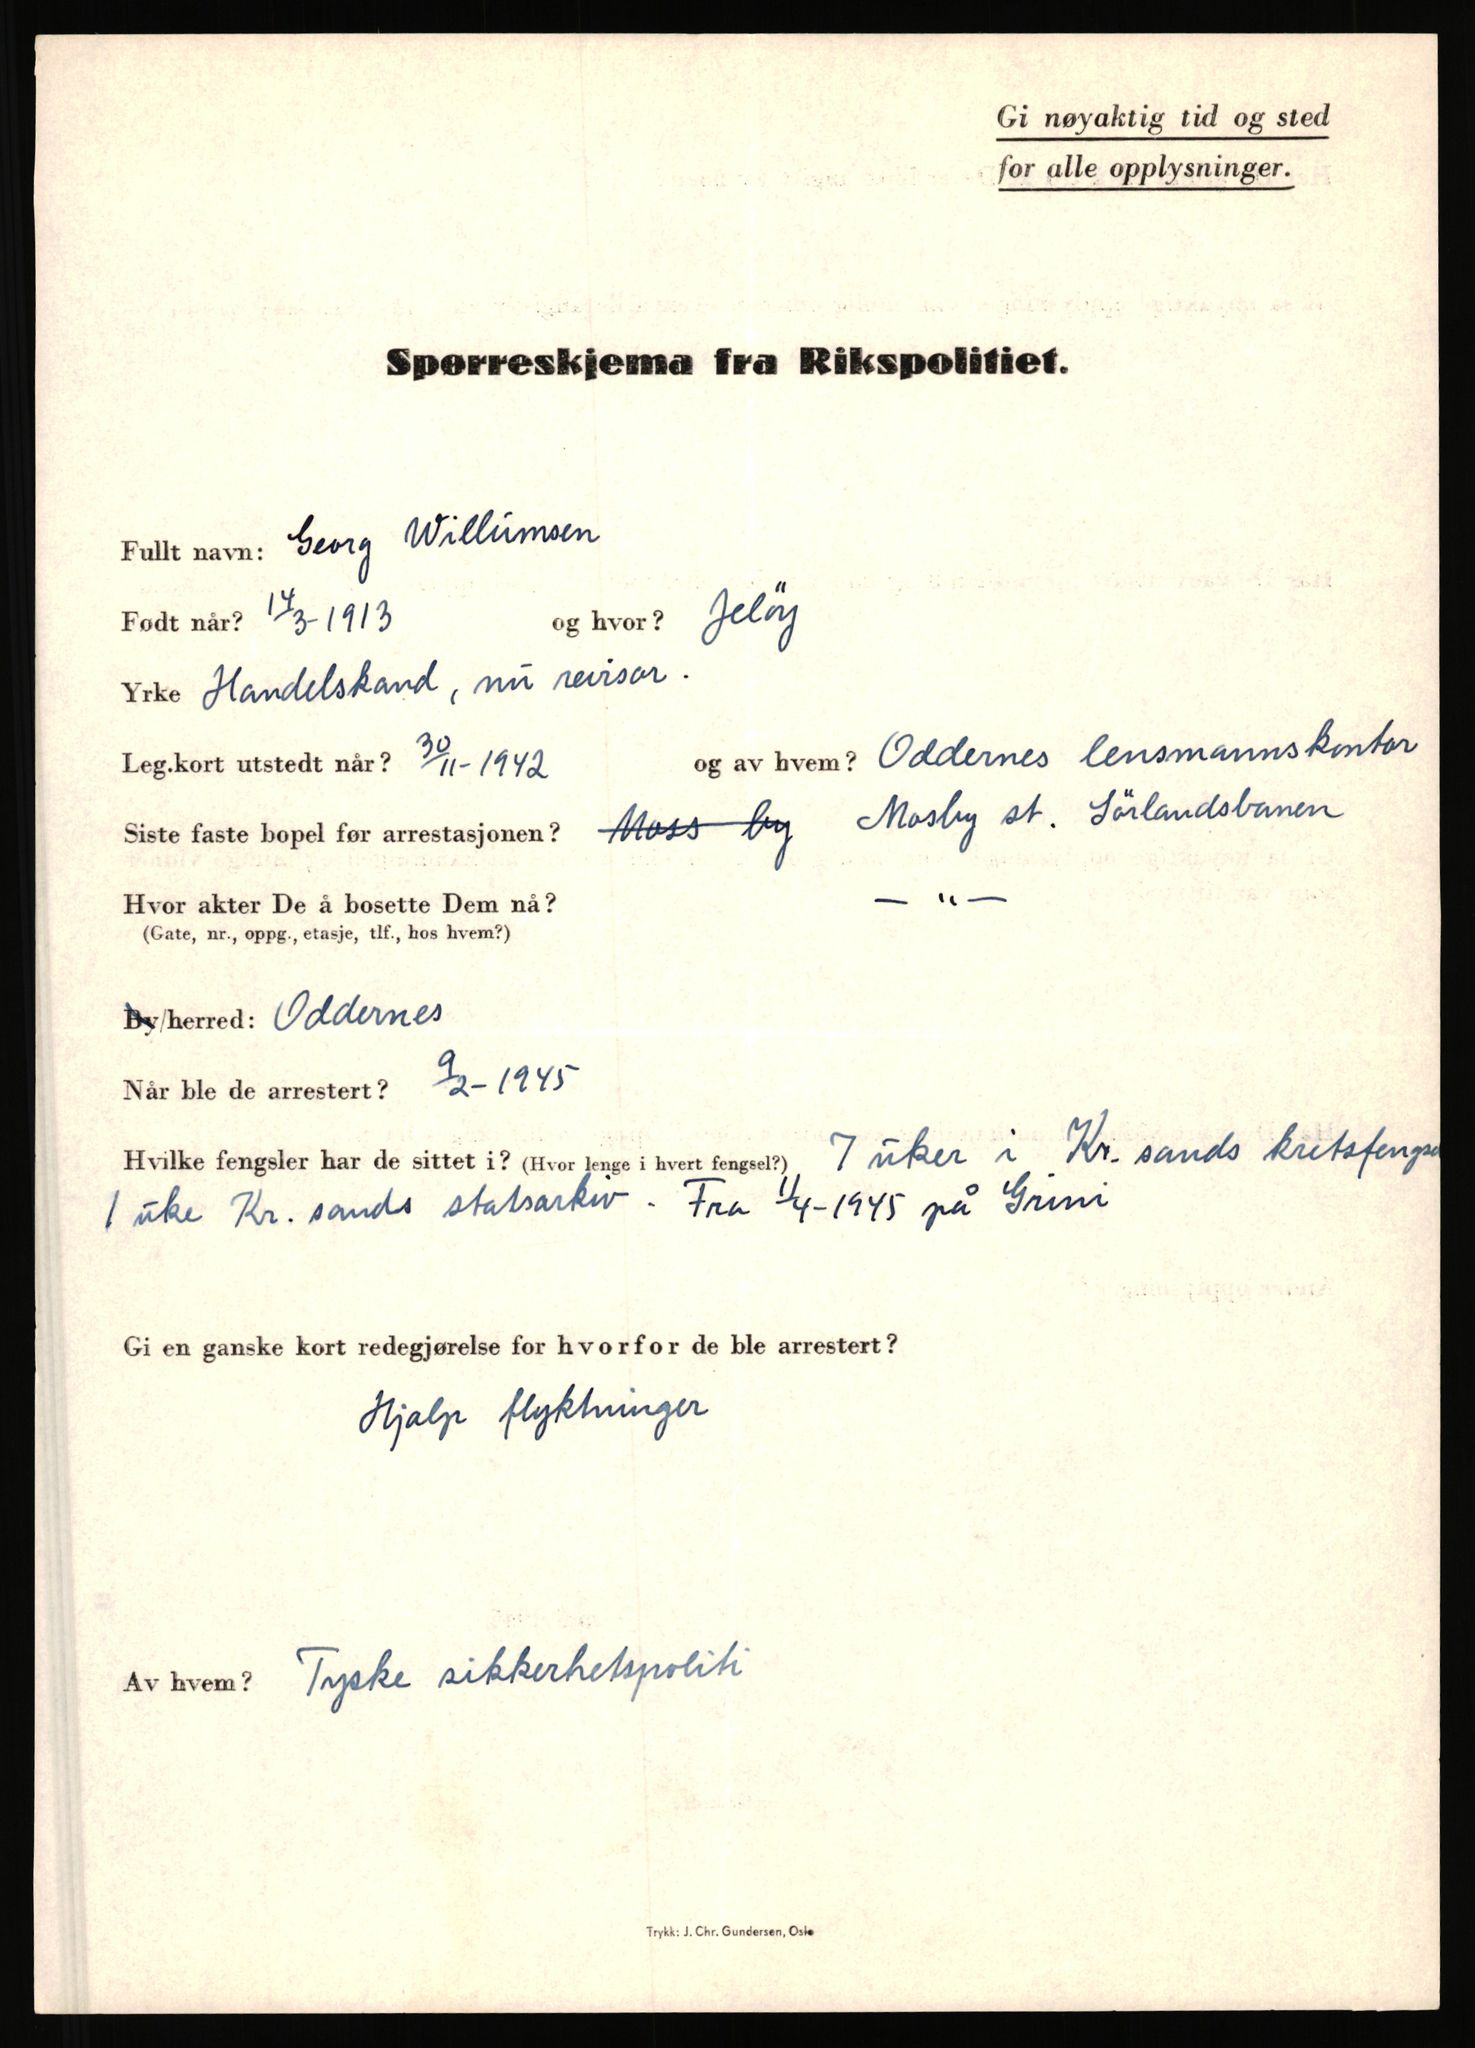 Gi nøyaktig tid og sted
for alle opplysninger.
Spørreskjema fra Rikspolitiet.
Fullt navn: Georg Willumsen
Født når? 14/3-1913 og hvor? Jelöy
Yrke Handelskand, nu revisor.
Leg.kort utstedt når? 30/11-1942 og av hvem? Oddernes lensmannskontor
Siste faste bopel før arrestasjonen? Moss by Mosby st. Sörlandsbanen
Hvor akter De å bosette Dem nå? — " —
(Gate, nr., oppg., etasje, tlf., hos hvem?)
By/herred: Oddernes
Når ble de arrestert? 9/2-1945
Hvilke fengsler har de sittet i? (Hvor lenge i hvert fengsel?) 7 uker i Kr.sands kretsfengsel
1 uke Kr. sands statsarkiv. Fra 11/4-1945 på Grini
Gi en ganske kort redegjørelse for hvorfor de ble arrestert?
Hjalp flyktninger
Av hvem? Tyske sikkerhetspoliti
Trykk: J. Chr. Gundersen, Oslo